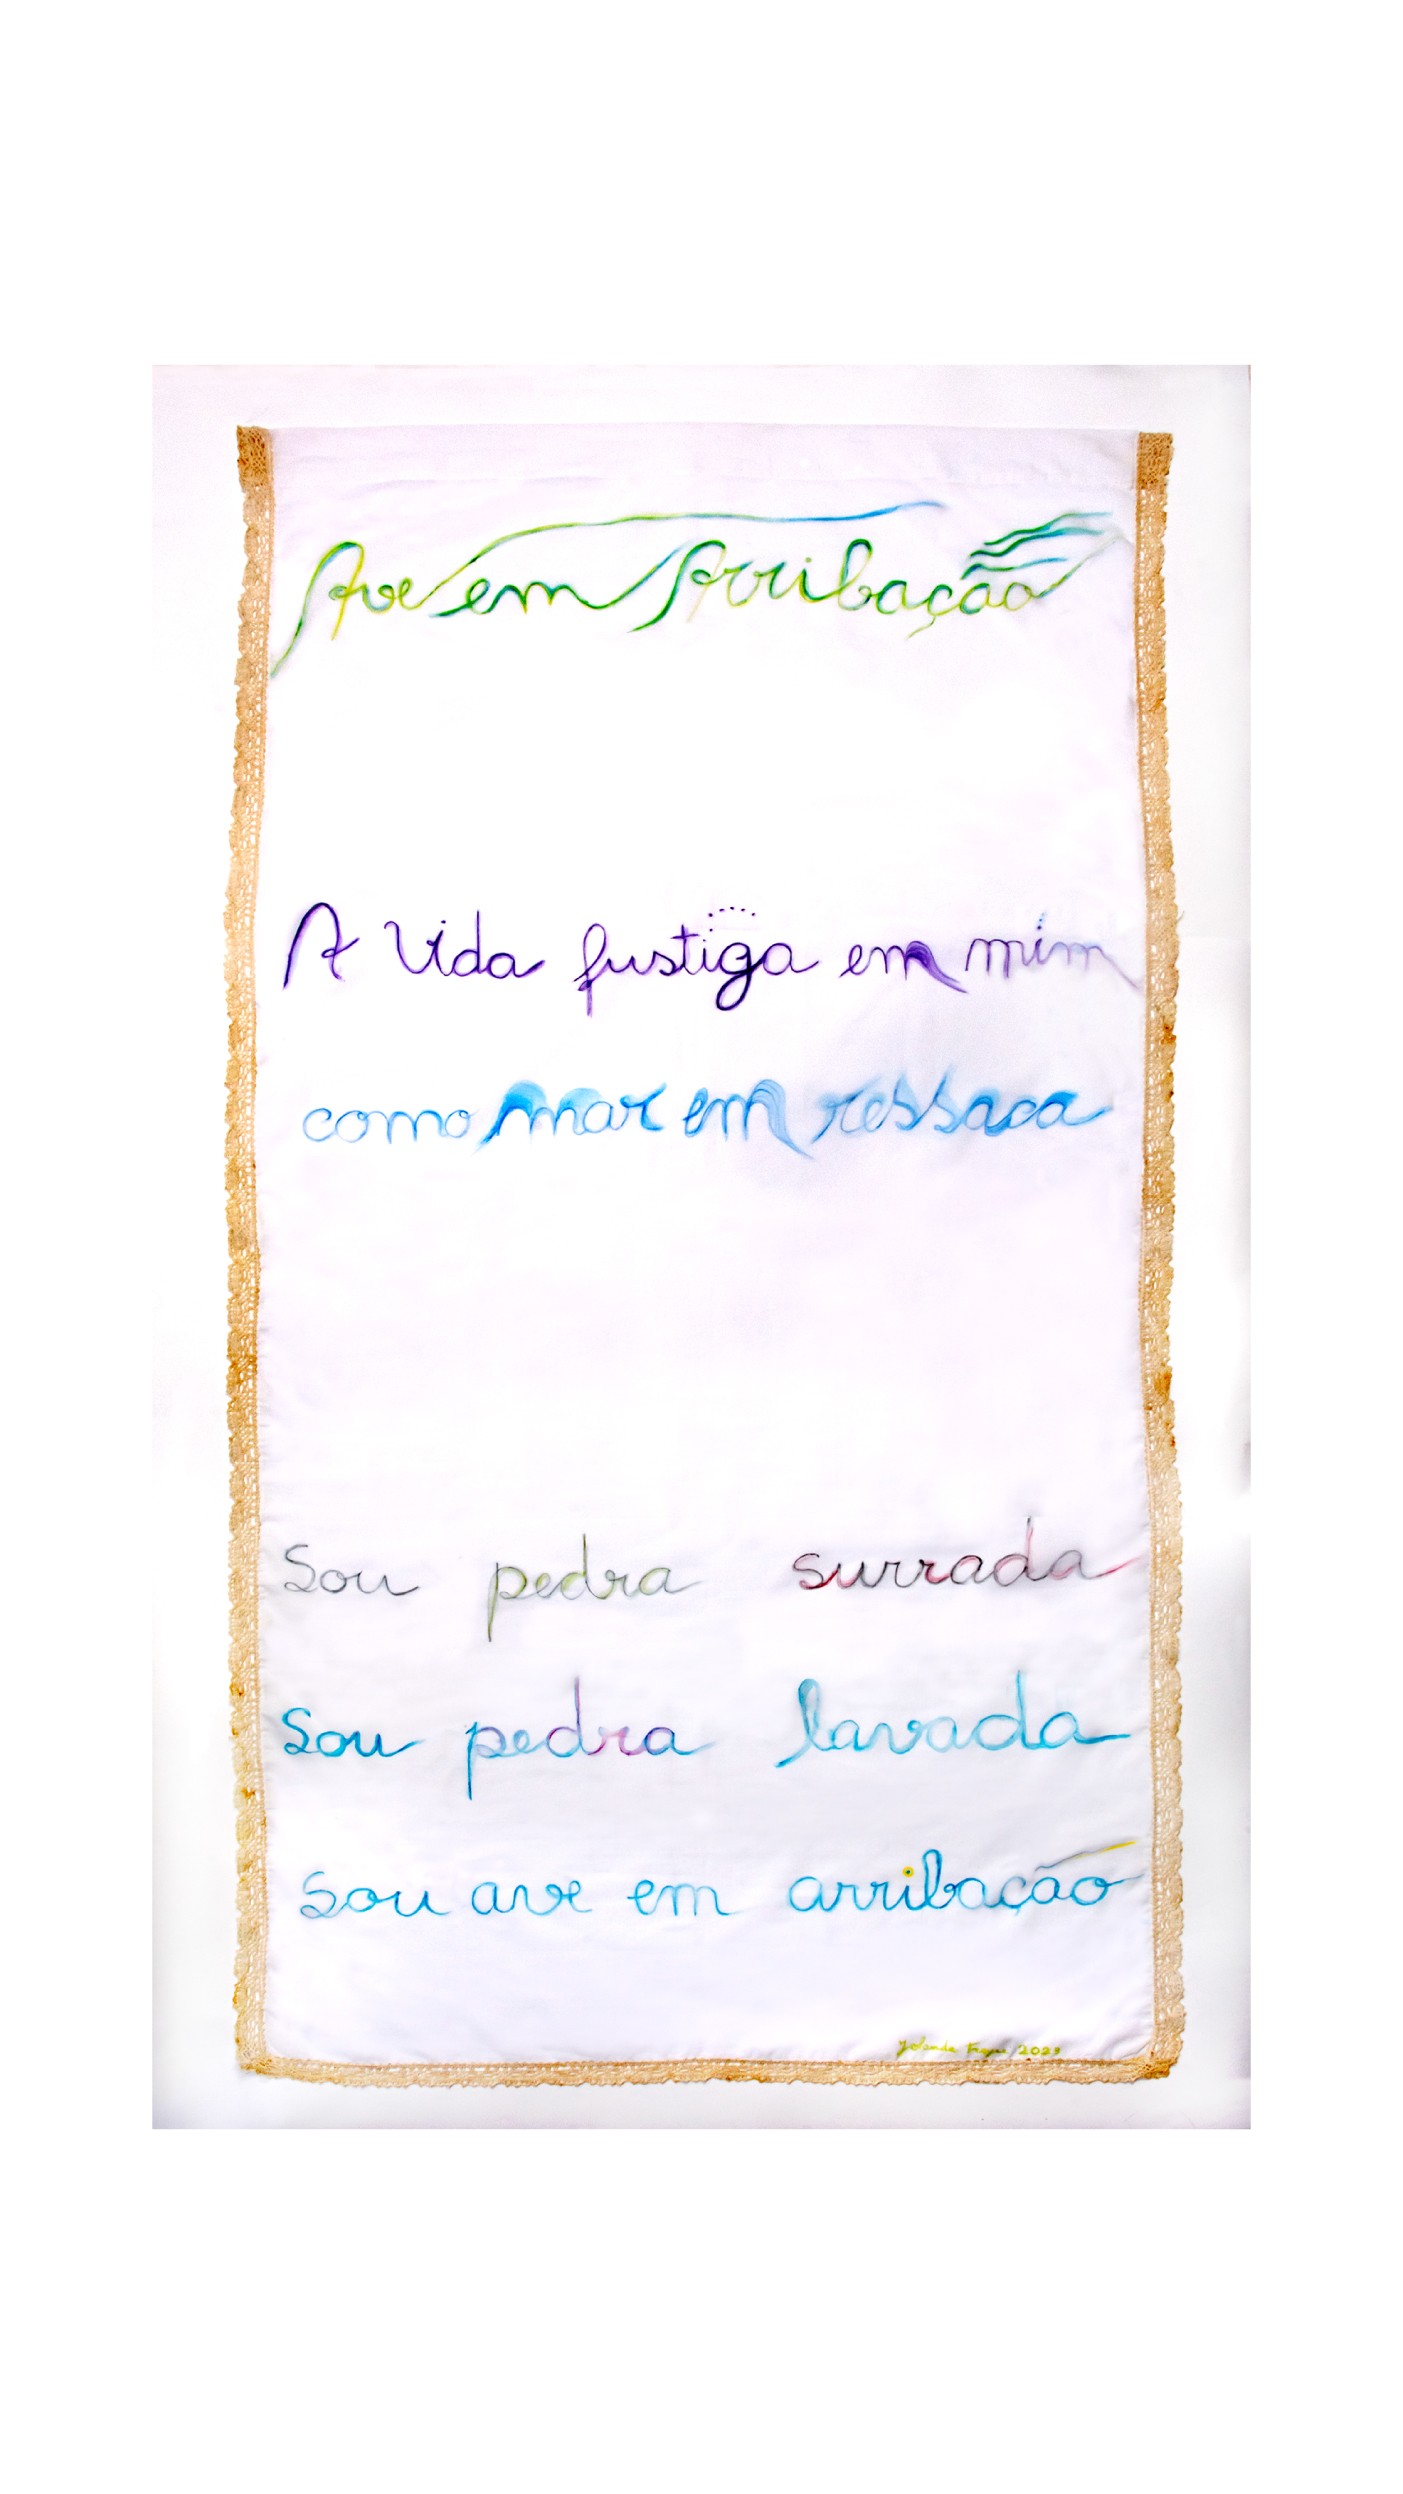 Ave em Arribação
A Vida fustiga em mim
como mar em ressaca
Sou pedra surrada
Sou pedra lavada
Sou ave em arribação
Yolanda 2023